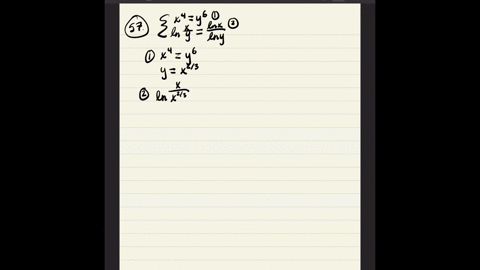 57. { x⁴ = y⁶ ①
ln x/y = ln x / ln y ②
① x⁴ = y⁶
y = x^(2/3)
② ln x / x^(2/3)